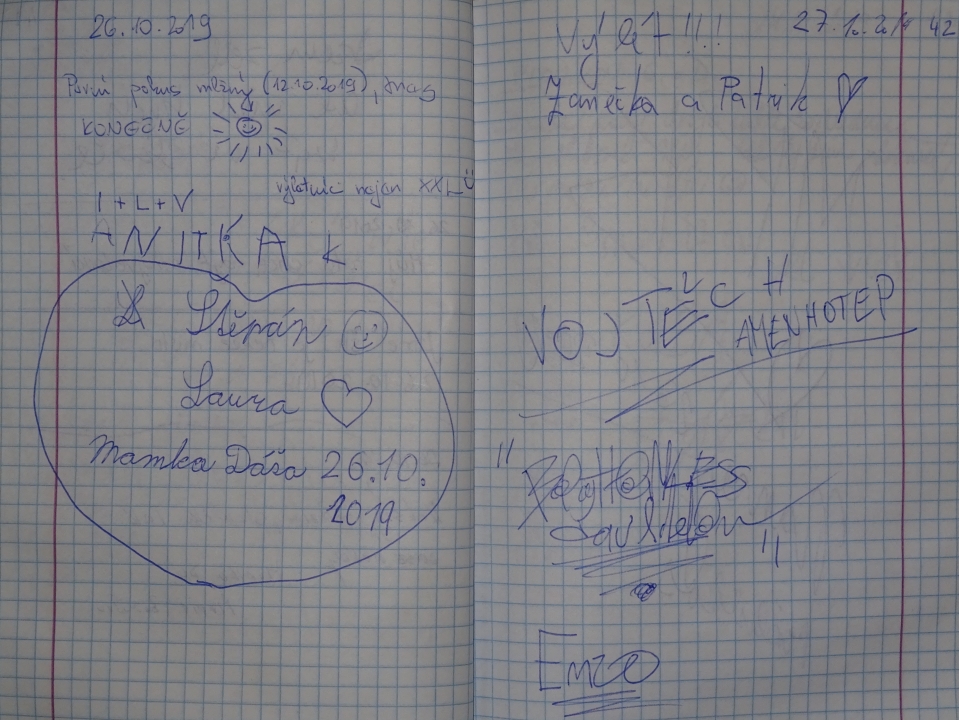 26.10.2019
První pokus mlžný (12.10.2019), dnes
KONEČNĚ
výletníci nejen XXL
I + L + V
ANITKA K
Štěpán
Laura
Mamka Dáša 26.10.
2019
42
Výlet!!!
Zanečka a Patrik
VOJTĚCH
AMENHOTEP
Emzo